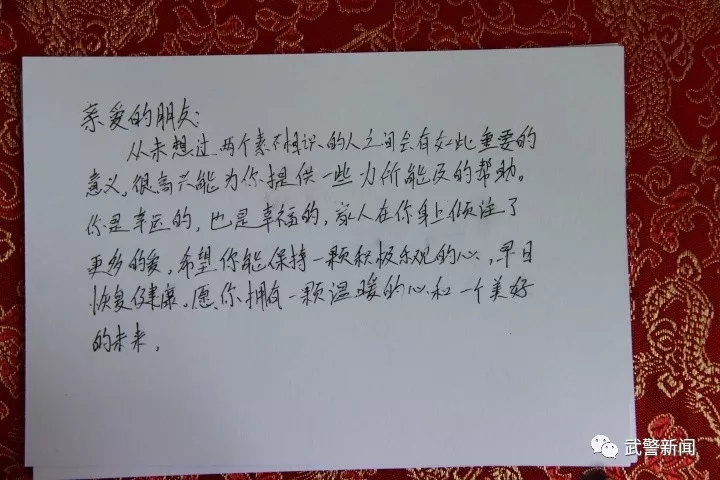 亲爱的朋友:
从未想过两个素不相识的人之间会有如此重要的
意义,很高兴能为你提供一些力所能及的帮助。
你是幸运的,也是幸福的,家人在你身上倾注了
更多的爱,希望你能保持一颗积极乐观的心,早日
恢复健康。愿你拥有一颗温暖的心和一个美好
的未来。
武警新闻